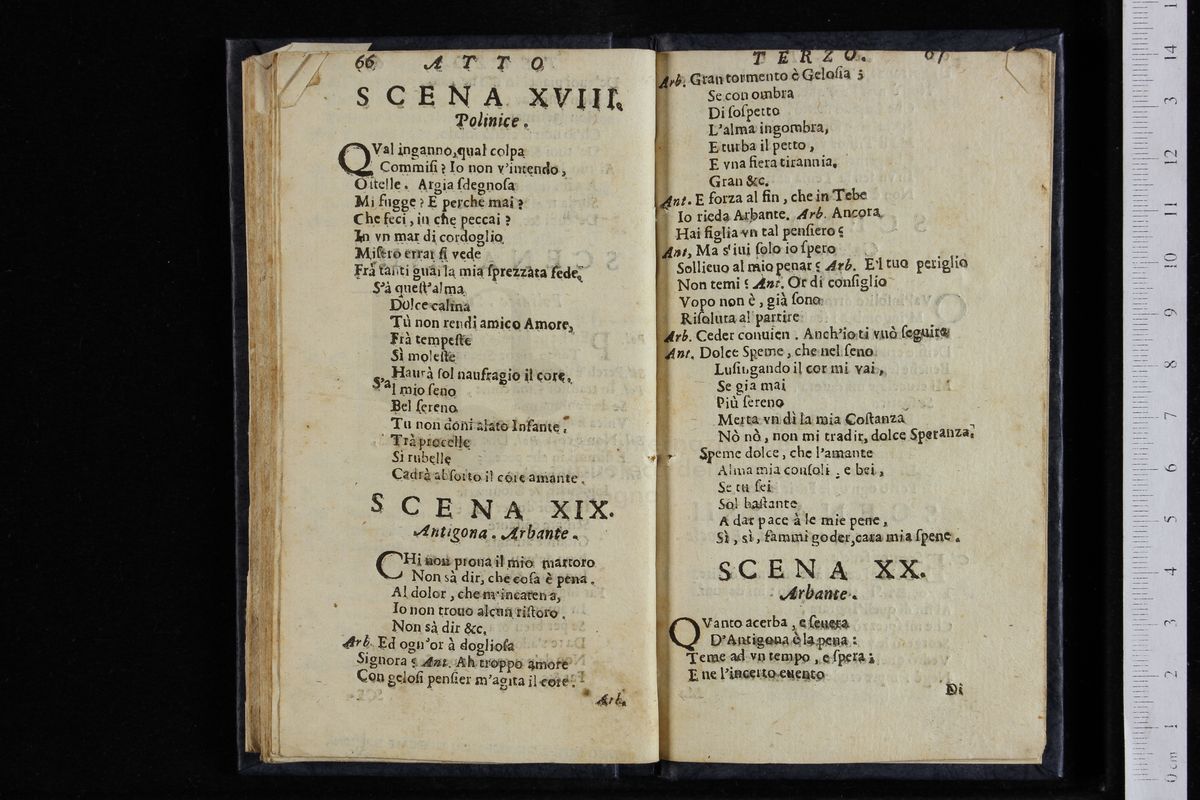 66 ATTO
SCENA XVIII.
Polinice.
QVal inganno, qual colpa
Commisi? Io non v'intendo,
O stelle. Argia sdegnosa
Mi fugge? E perche mai?
Che feci, in che peccai?
In vn mar di cordoglio
Misero errar si vede
Frà tanti guai la mia sprezzata fede.
S'à quest'alma
Dolce calma
Tù non rendi amico Amore,
Frà tempeste
Sì moleste
Haurà sol naufragio il core.
S'al mio seno
Bel sereno
Tu non doni alato Infante,
Trà procelle
Si rubelle
Cadrà absorto il core amante.
SCENA XIX.
Antigona. Arbante.
CHi non proua il mio martoro
Non sà dir, che cosa è pena.
Al dolor, che m'incatena,
Io non trouo alcun ristoro.
Non sà dir &c.
Arb. Ed ogn'or à dogliosa
Signora? Ant. Ah troppo amore
Con gelosi pensier m'agita il core.
Arb.
TERZO. 67
Arb. Gran tormento è Gelosia;
Se con ombra
Di sospetto
L'alma ingombra,
E turba il petto,
E vna fiera tirannia.
Gran &c.
Ant. E forza al fin, che in Tebe
Io rieda Arbante. Arb. Ancora
Hai figlia vn tal pensiero?
Ant, Ma s'iui solo io spero
Sollieuo al mio penar? Arb. E'l tuo periglio
Non temi? Ant. Or di consiglio
Vopo non è, già sono
Risoluta al partire
Arb. Ceder conuien. Anch'io ti vuò seguire
Ant. Dolce Speme, che nel seno
Lusingando il cor mi vai,
Se gia mai
Più sereno
Merta vn dì la mia Costanza
Nò nò, non mi tradir, dolce Speranza.
Speme dolce, che l'amante
Alma mia consoli, e bei,
Se tu sei
Sol bastante
A dar pace à le mie pene,
Sì, sì, fammi goder, cara mia spene.
SCENA XX.
Arbante.
QVanto acerba, e seuera
D'Antigona è la pena:
Teme ad vn tempo, e spera;
E ne l'incerto euento
Di